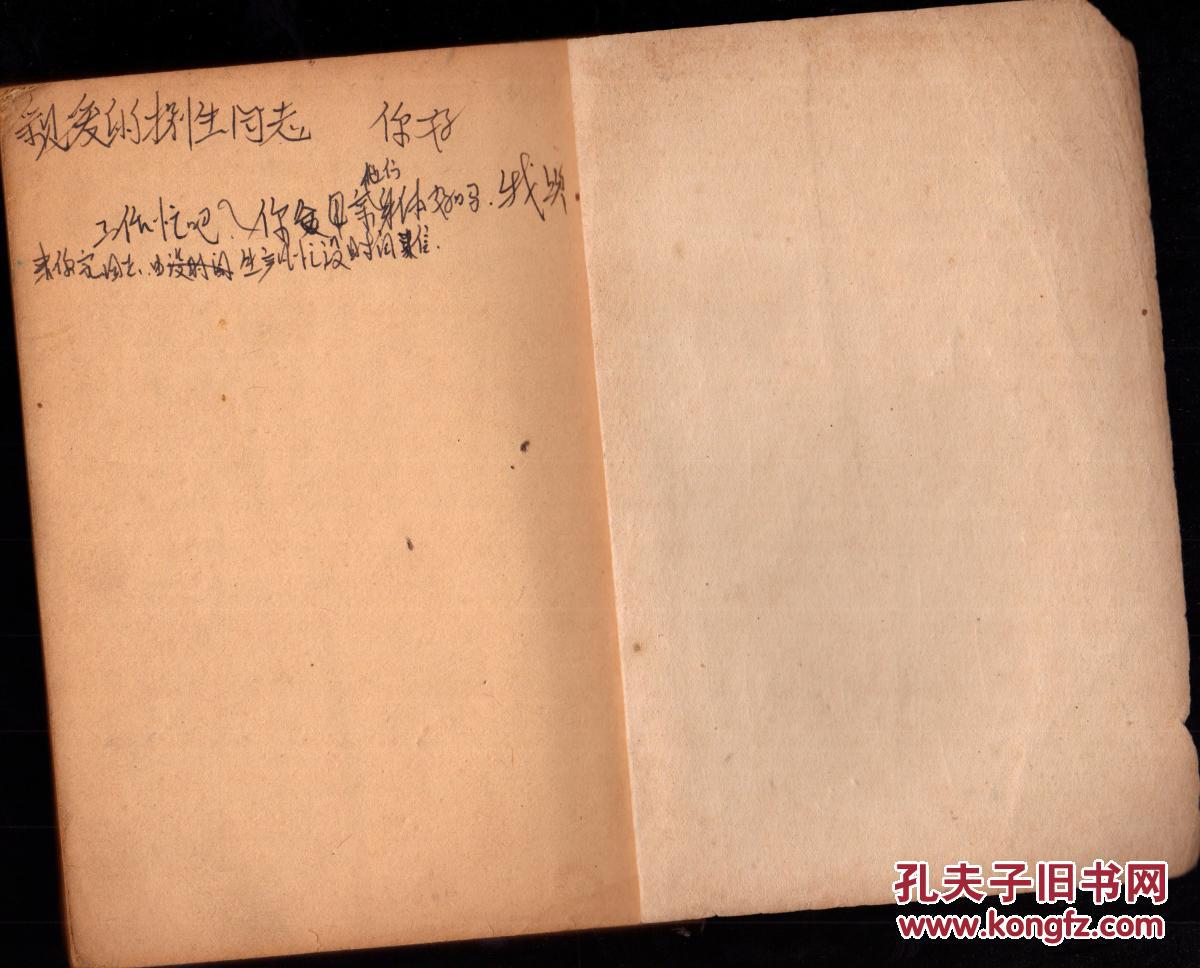 亲爱的 生同志 你好
工作忙吧?你 母亲他们身体好吗.我
来你家回去. 没时间 生产忙没时间来信.
孔夫子旧书网
www.kongfz.com